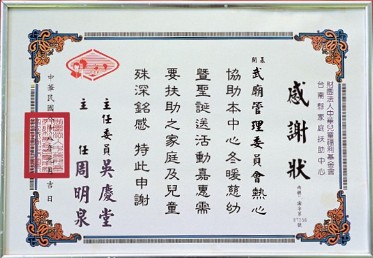 財團法人中華兒童福利基金會
台南縣家庭扶助中心
感謝狀
武廟管理委員會熱心
協助本中心冬暖慈幼
暨聖誕送活動嘉惠需
要扶助之家庭及兒童
殊深銘感 特此申謝
主任委員 吳慶堂
主任 周明泉
中華民國